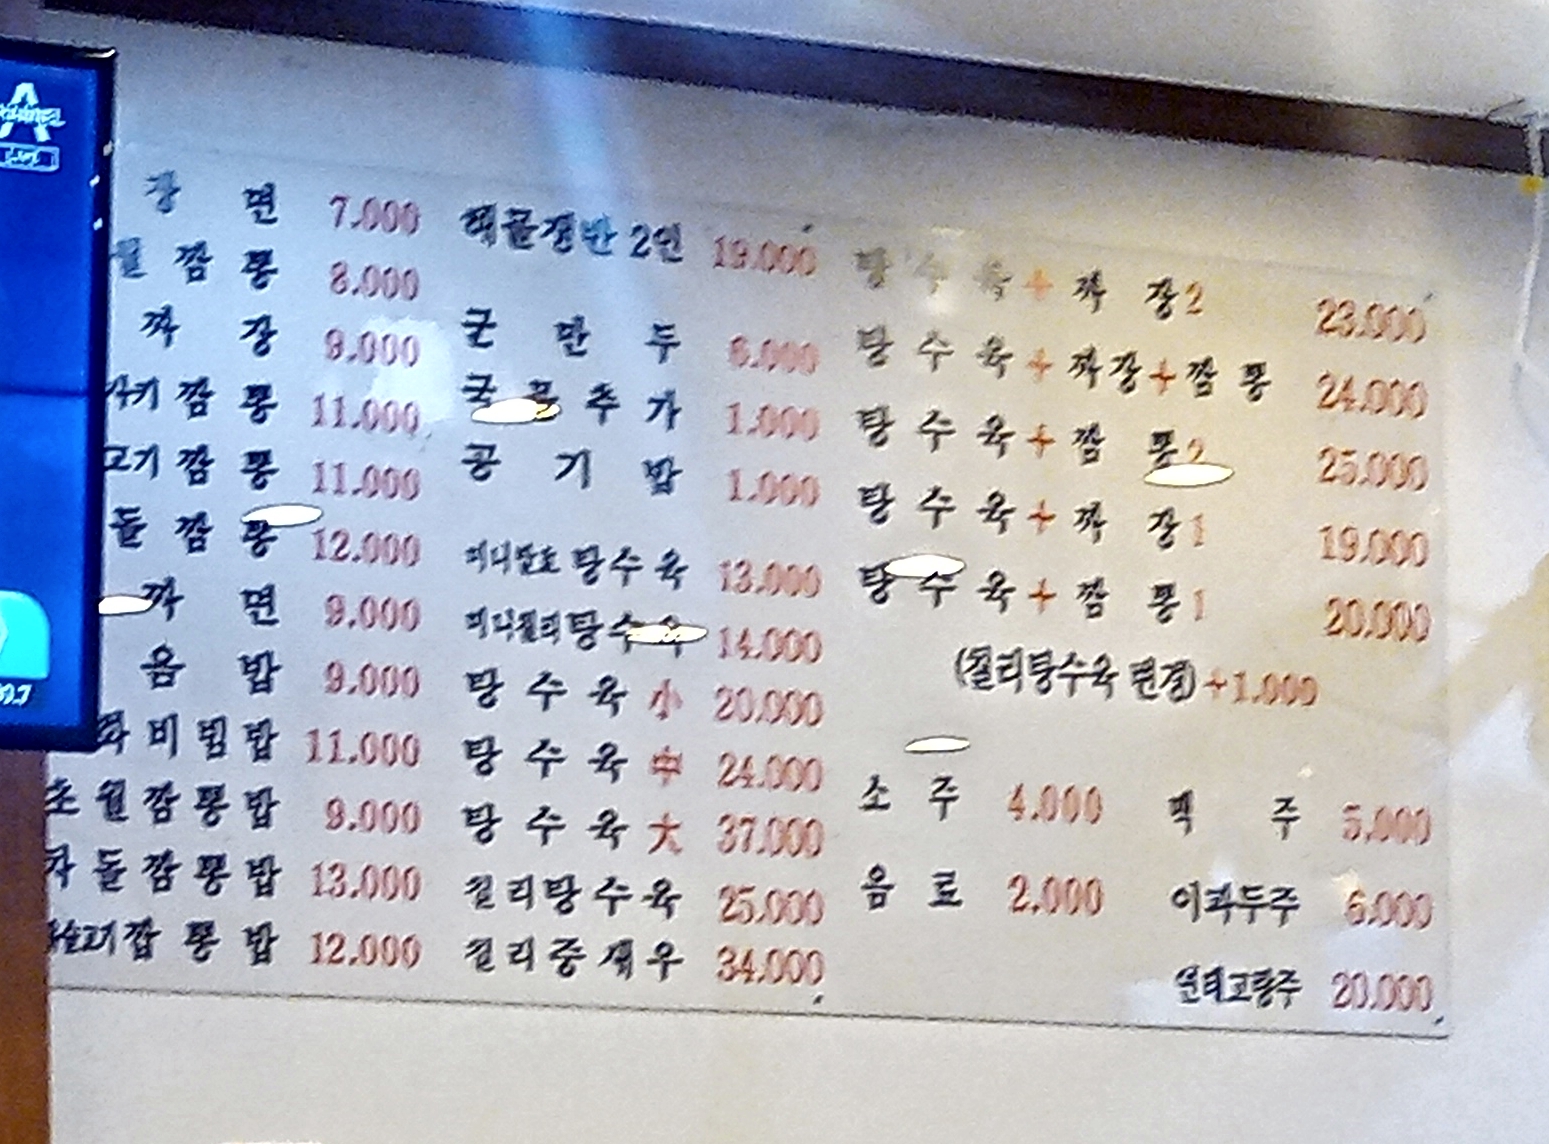 장 면 7.000
월 짬 뽕 8.000
짜 장 9.000
짬 뽕 11.000
고기 짬 뽕 11.000
돌 짬 뽕 12.000
짜 면 9.000
음 밥 9.000
비 빔 밥 11.000
초 월 짬 뽕 밥 9.000
차 돌 짬 뽕 밥 13.000
고기 짬 뽕 밥 12.000
해물쟁반 2인 19.000
군 만 두 6.000
국 물 추 가 1.000
공 기 밥 1.000
미니 탕수육 13.000
미니칠리탕수육 14.000
탕 수 육 小 20.000
탕 수 육 中 24.000
탕 수 육 大 37.000
칠리탕수육 25.000
칠리중새우 34.000
탕 수 육 + 짜 장 2 23.000
탕 수 육 + 짜장 + 짬 뽕 24.000
탕 수 육 + 짬 뽕 2 25.000
탕 수 육 + 짜 장 1 19.000
탕 수 육 + 짬 뽕 1 20.000
(칠리탕수육 변경) +1.000
소 주 4.000
맥 주 5.000
음 료 2.000
이과두주 6.000
연태고량주 20.000